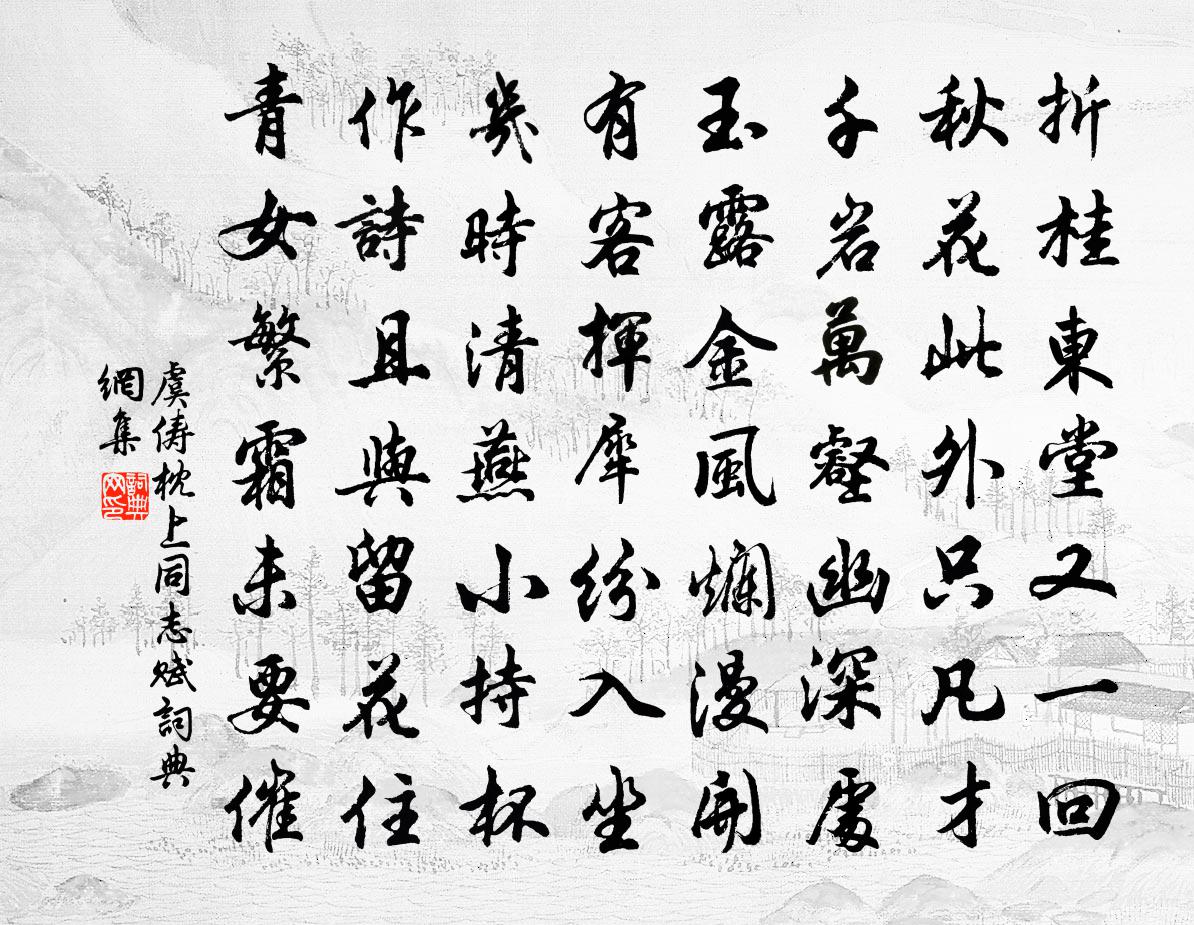 折桂東堂又一回
秋花此外只凡才
千岩萬壑幽深處
玉露金風爛漫開
有客揮犀紛入坐
幾時清燕小持杯
作詩且與留花住
青女繁霜未要催
虞儔枕上同志賦詞典
網集
詞典
网印